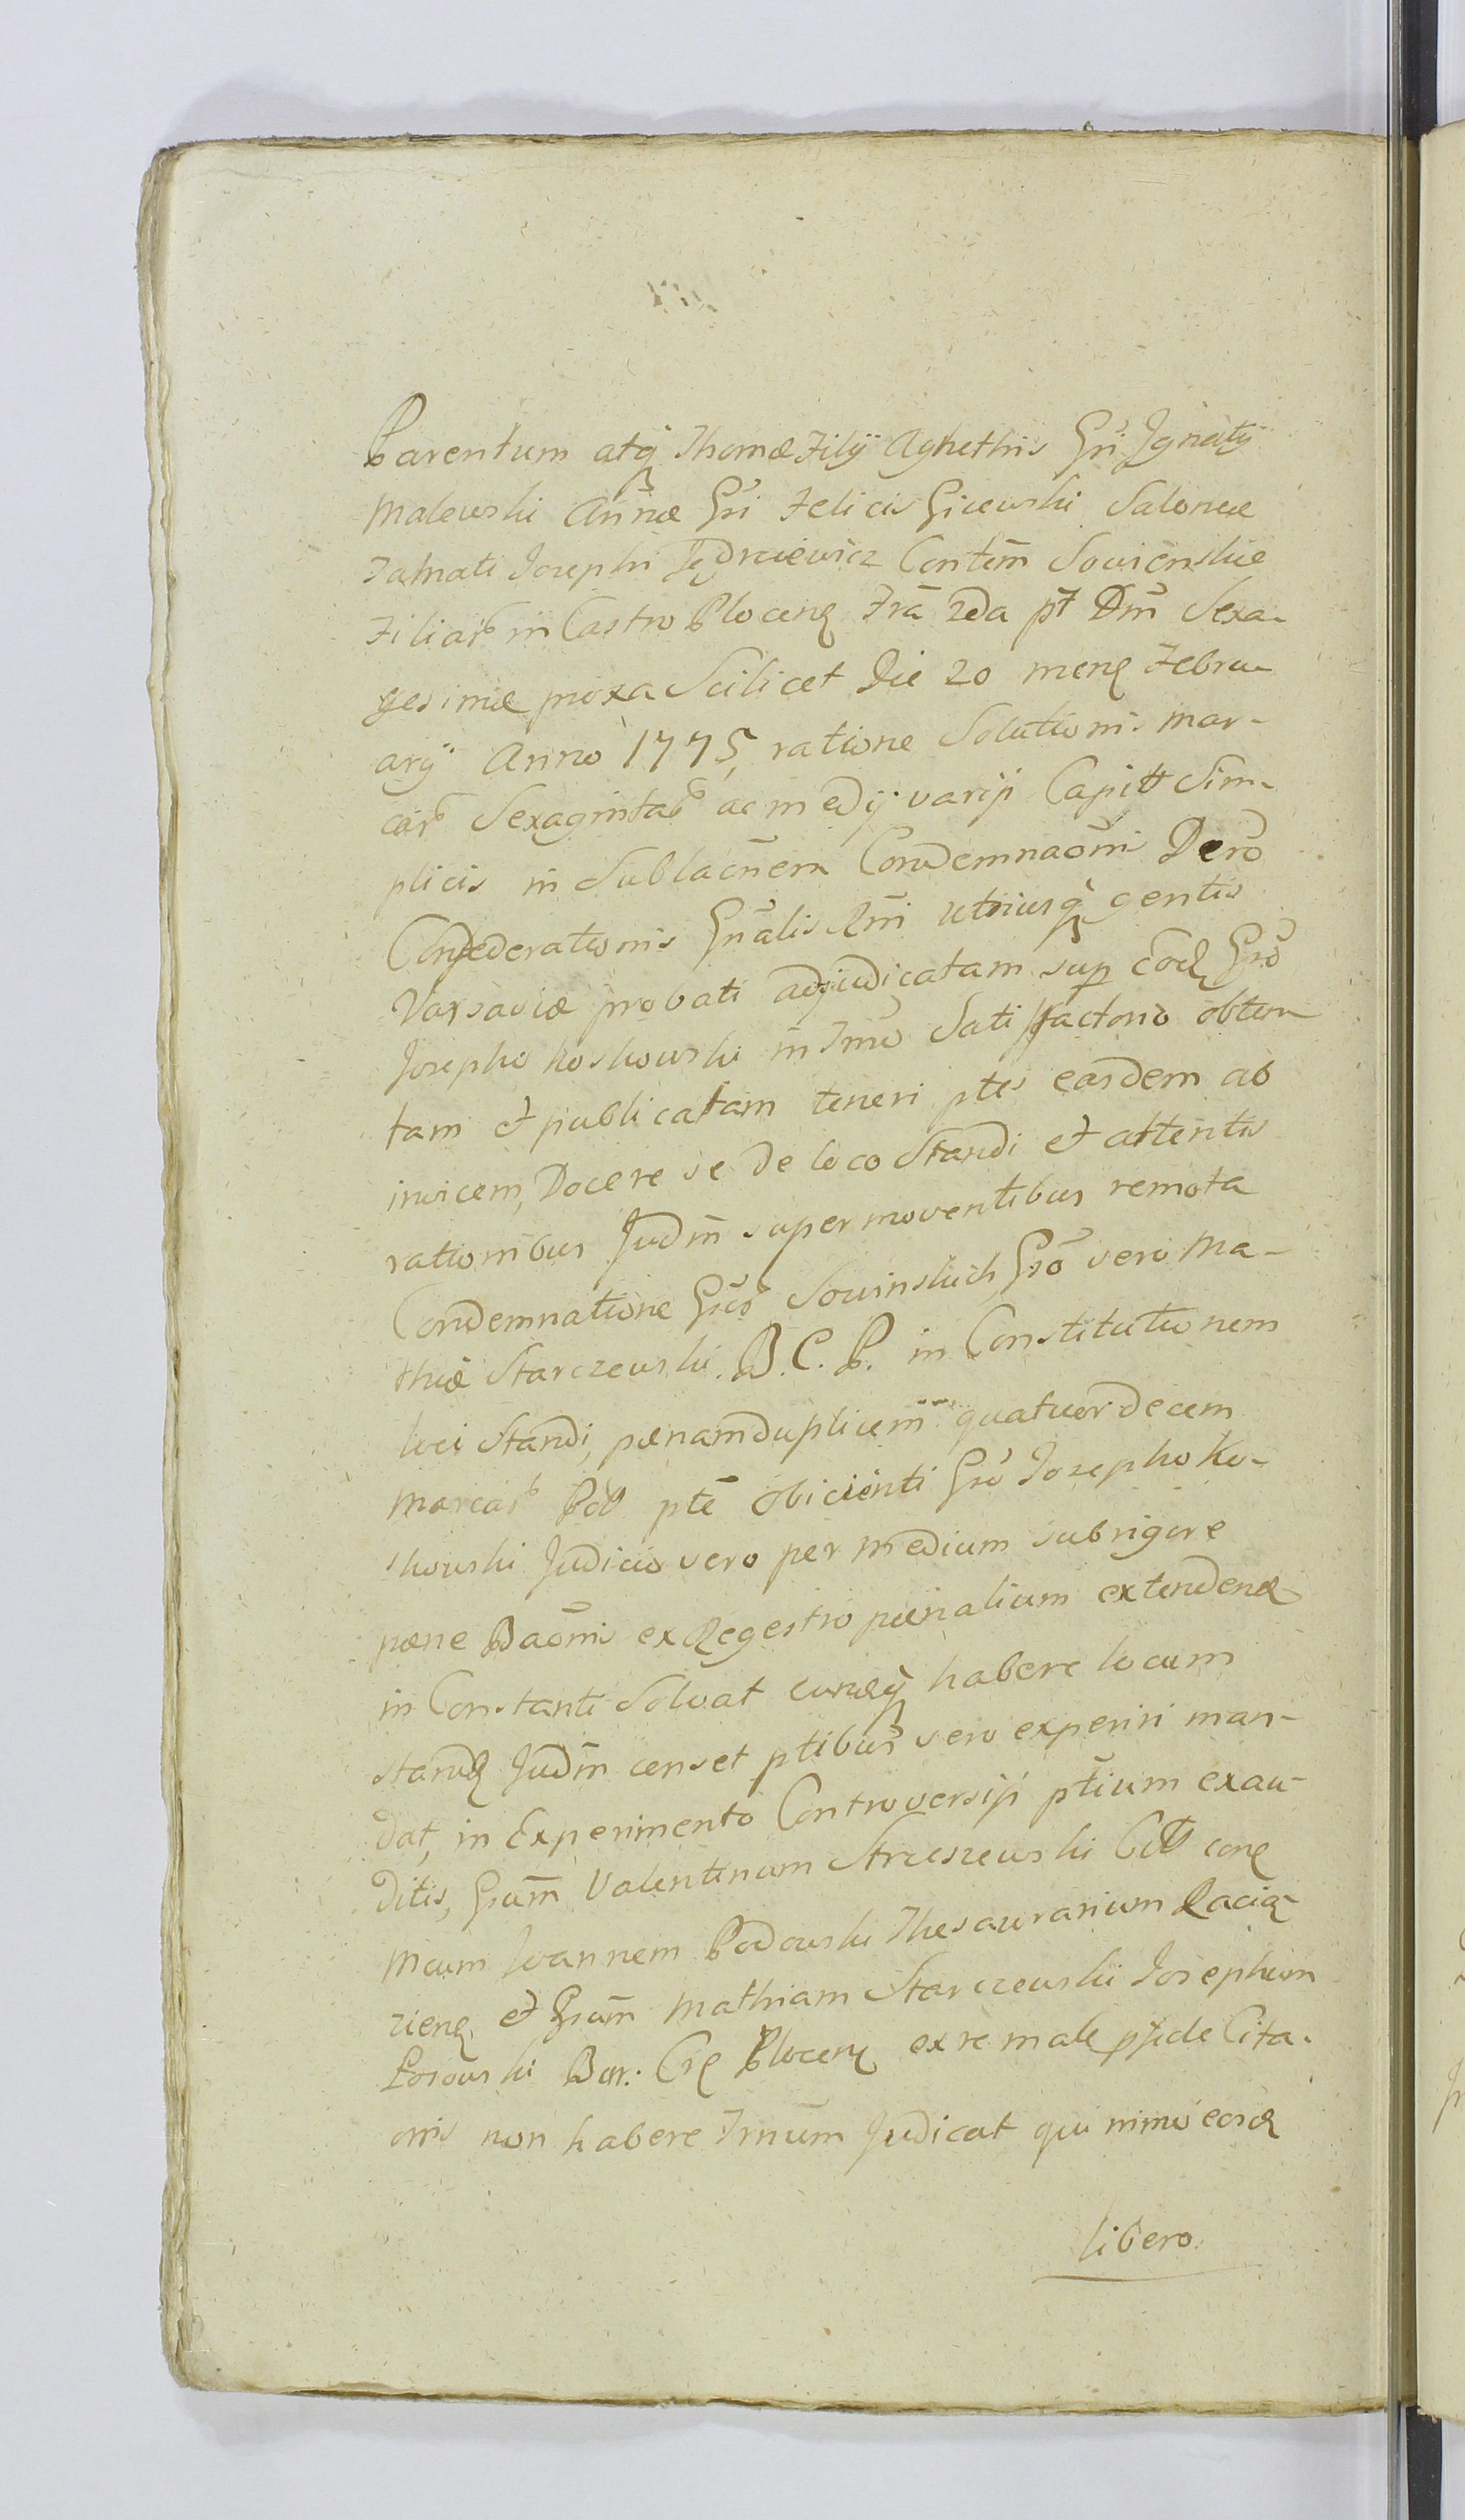 Parentum atq Thomæ Filij Aghethis Gsi Ignatij
Malewski Annæ Gsi Felicis Gicewski Salomeæ
Famati Josephi Jędrzeiewicz Contm Sowienskie
Filiar in Castro Plocen Fria 2da pt Dm Sexa-
gesimæ proxa Scilicet Die 20 mens Febru-
arij Anno 1775, ratione Solutionis mar-
car Sexagintab ac medij varij Capitt Sim-
plicis in Sublacnem Condemnaoni Dero
Confederationis Gnalis Ani utriusq gentis
Varsaviæ probati adjudicatam sup eod Gso
Josepho Koskowski in Tno Satisfactorio obten-
tam et publicatam teneri ptes easdem ab
invicem, Docere se de loco Standi et attentis
rationibus Judm super moventibus remota
Condemnatione Gsos Sowinskich Gso vero Ma-
thiæ Starczewski B. C. P. in Constitutionem
loci Standi, pænam duplicem quatuordecem
Marcar Pol pte obicienti Gso Josepho Ko-
skowski Judicio vero per medium sub rigore
pæne Baonis ex Regestro pænalium extenden
in Constanti Solvat eumq habere locum
standi Judm censet ptibus vero experiri man-
dat, in Experimento Controversijs ptium exau-
ditis, Gsum Valentinum Strzeszewski Cit cone
Mcum Joannem Bodowski Thesaurarium Racią-
zien et Gsum Mathiam Starczewski Josephum
Łosowski Bur. Crę Plocen ex re male pside Cita-
onis non habere Trnum Judicat qui nimo eosd
libero